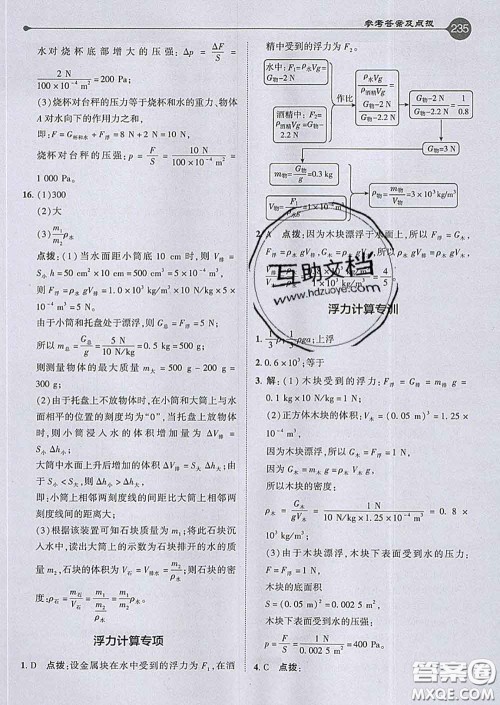 参考答案及点拨 235
水对烧杯底部增大的压强:Δp = ΔF/S =
2 N/(100×10⁻⁴ m²) = 200 Pa;
(3)烧杯对台秤的压力等于烧杯和水的重力、物体
A对水向下的作用力之和,
即:F = G烧杯和水 + F浮 = 8 N + 2 N = 10 N,
烧杯对台秤的压强:p = F/S = 10 N/(100×10⁻⁴ m²) =
1 000 Pa。
16. (1)300
(2)大
(3)m₁/m₂ ρ水
点拨:(1)当水面距小筒底 10 cm 时,则 V排 =
S小 h = 50 cm² × 10 cm = 500 cm³ = 5 × 10⁻⁴ m³,
则:F浮 = ρ水 gV排 = 1.0×10³ kg/m³ × 10 N/kg × 5 ×
10⁻⁴ m³ = 5 N
由于小筒和托盘处于漂浮,则 G总 = F浮 = 5 N,
所以 m总 = G总/g = 5 N/(10 N/kg) = 0.5 kg = 500 g,
则测量物体的最大质量 m = 500 g - 200 g =
300 g。
(2)由于托盘上不放物体时,在小筒和大筒上与水
面相平的位置的刻度均为“0”,当托盘上放物体
时,小筒浸入水的体积增加量为 ΔV排 =
S小 Δh小;
大筒中水面上升后增加的体积 ΔV排 = S大 Δh大;
由于 S小 < S大,所以,Δh小 > Δh大,
即:小筒上相邻两刻度线的间距比大筒上相邻两刻度线
间的距离大;
(3)根据该装置可知石块质量为 m₁,将此石块沉
入水中,读出大筒上的示数为石块排开的水的质
量,石块的体积为 V石 = V排水 = m₂/ρ水,石块的密
度:ρ石 = m石/V石 = m₁/(m₂/ρ水) = m₁/m₂ ρ水。
浮力计算专项
1. D 点拨:设金属块在水中受到的浮力为 F₁,在酒
精中受到的浮力为 F₂。
水中:F₁ = ρ水Vg = G物-2 N
酒精中:F₂ = ρ酒精Vg = G物-2.2 N
作比
ρ水Vg/ρ酒精Vg = (G物-2 N)/(G物-2.2 N)
(G物-2 N)/(G物-2.2 N) = 1/0.8
G物 = 3 N
m物 = G物/g = 0.3 kg
ρ物 = m物/V物 = 3×10³ kg/m³
2. A 点拨:由于木块漂浮于水面上,所以 F浮 = G木,
浮力计算专训
2. 0.6×10³;等于
3. 解:(1)木块受到的浮力:F浮 = G木 = m木 g =
(2)正方体木块的体积:V木 = (0.05 m)³ = 1.25×
10⁻⁴ m³,
因为木块漂浮,所以 G木 = F浮 = 1 N,
因为 G木 = m木 g = ρ木 gV木,
所以木块的密度:
ρ木 = G木/gV木 = 1 N/(10 N/kg×1.25×10⁻⁴ m³) = 0.8 ×
10³ kg/m³
(3)由于木块漂浮,木块下表面受到水的压力:
F = F浮 = 1 N,
木块的底面积
S = (0.05 m)² = 0.002 5 m²,
木块下表面受到水的压强:
p = F/S = 1 N/0.002 5 m² = 400 Pa。
4. C 点拨:
互助文档
www.hdzuoye.com
答案圈
MXQE.COM